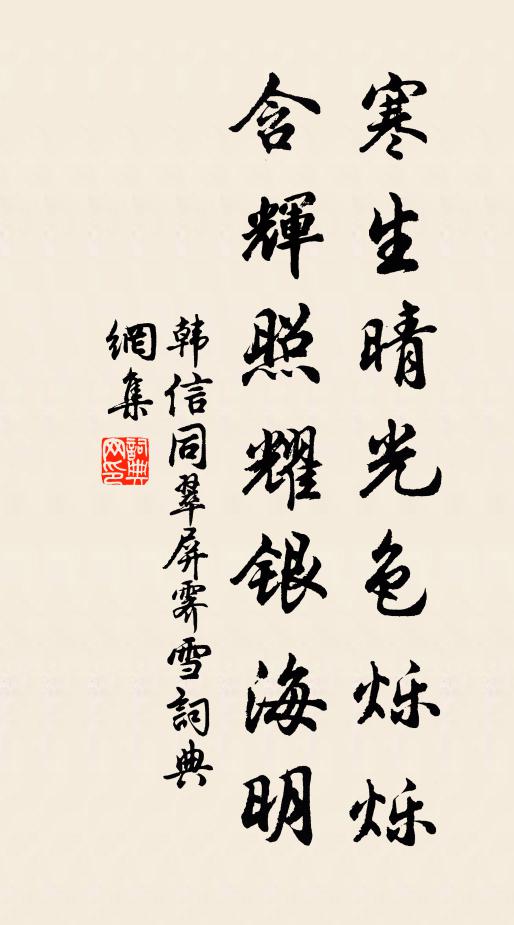 寒生晴光色烁烁
含輝照耀銀海明
韩信同翠屏霁雪詞典
網集
詞典
网印